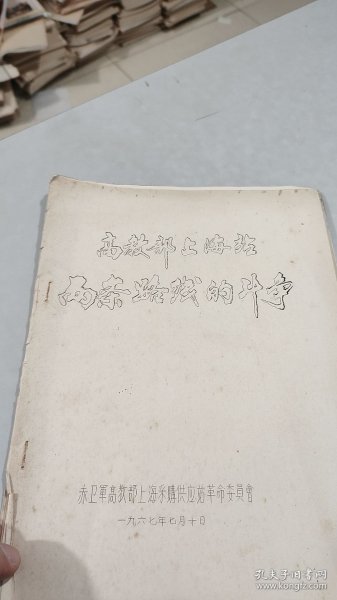 高教部上海站
两条路线的斗争
赤卫軍高教部上海采購供应站革命委員會
一九六七年七月十日
孔夫子旧书网